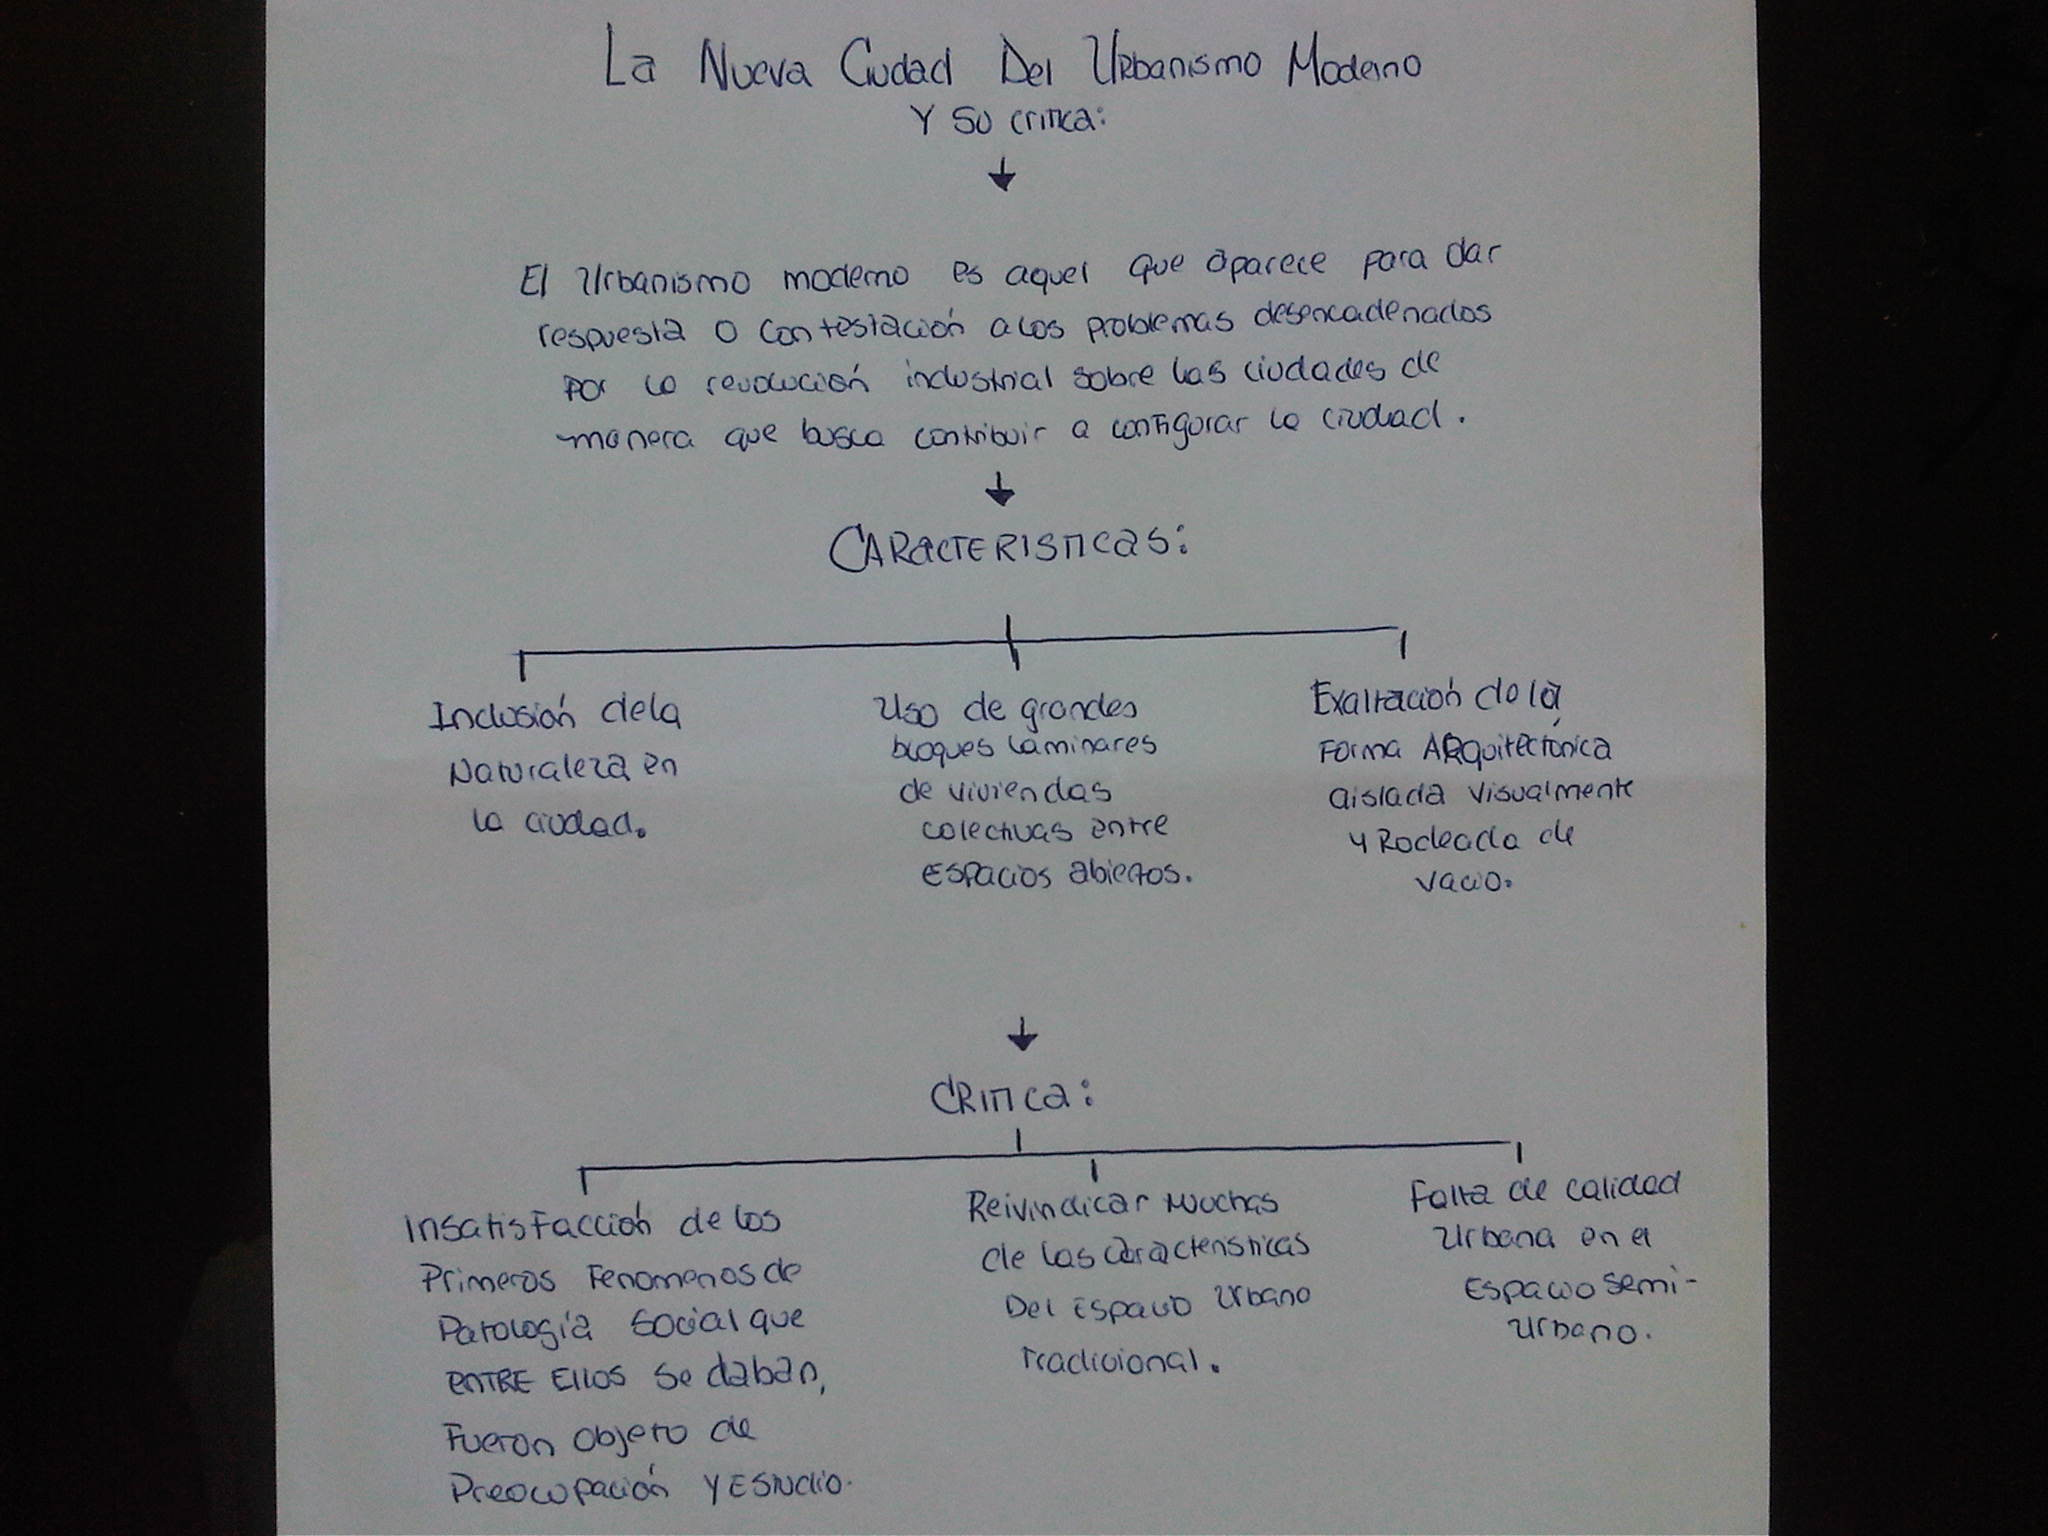 La Nueva Ciudad Del Urbanismo Moderno
Y su critica:
El Urbanismo moderno es aquel que aparece para dar
respuesta o contestación a los problemas desencadenados
por la revolución industrial sobre las ciudades de
manera que busca contribuir a configurar la ciudad.
CARACTERISTICAS:
Inclusión de la
Naturaleza en
la ciudad.
Uso de grandes
bloques laminares
de viviendas
colectivas entre
Espacios abiertos.
Exaltación de la
Forma ARquitectónica
aislada visualmente
y Rodeada de
vacio.
CRITICA:
Insatisfacción de los
Primeros Fenomenos de
Patología Social que
ENTRE Ellos se daban,
Fueron objeto de
Preocupación Y ESTUdio.
Reivindicar Muchas
de las características
Del Espacio Urbano
Tradicional.
Falta de calidad
Urbana en el
Espacio Semi-
Urbano.